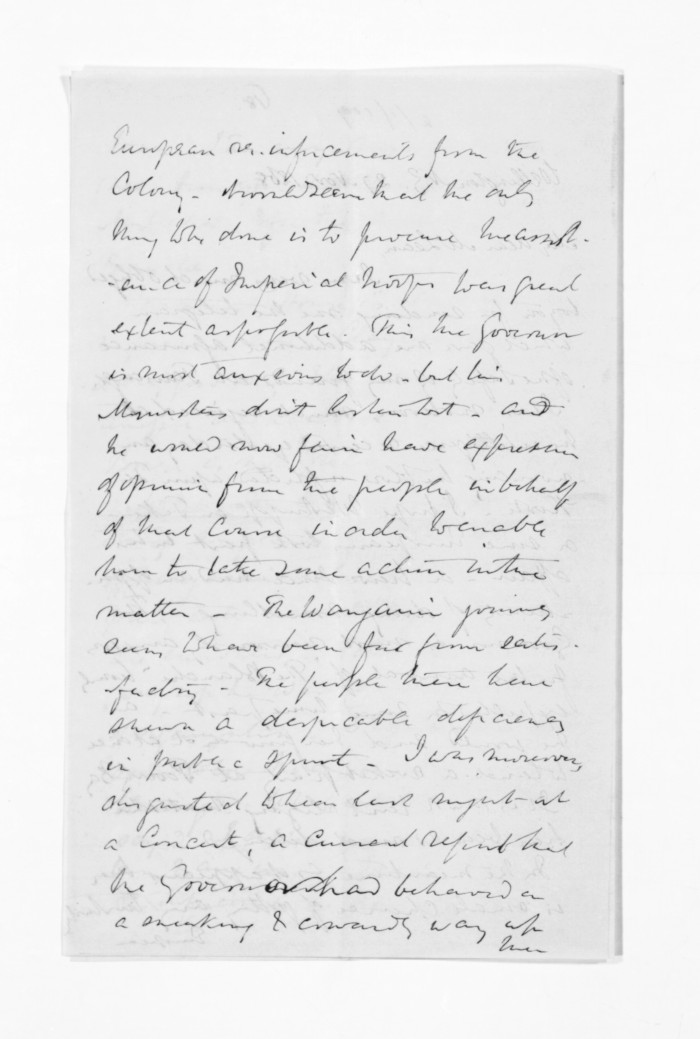 European re-inforcements from the
Colony - it would seem that the only
thing to be done is to procure the assist-
-ance of Imperial troops to as great
extent as possible. This the Governor
is most anxious to do - but his
Ministers don't listen to it - and
he would now fain have expression
of opinion from the people in behalf
of that course in order to enable
him to take some action in the
matter - The Wanganui journey
seems to have been far from satis-
factory - The people there have
shewn a despicable deficiency
in public spirit - I was moreover
disgusted to hear last night at
a Concert, a current report that
the Governor had behaved in
a sneaking & cowardly way up
there